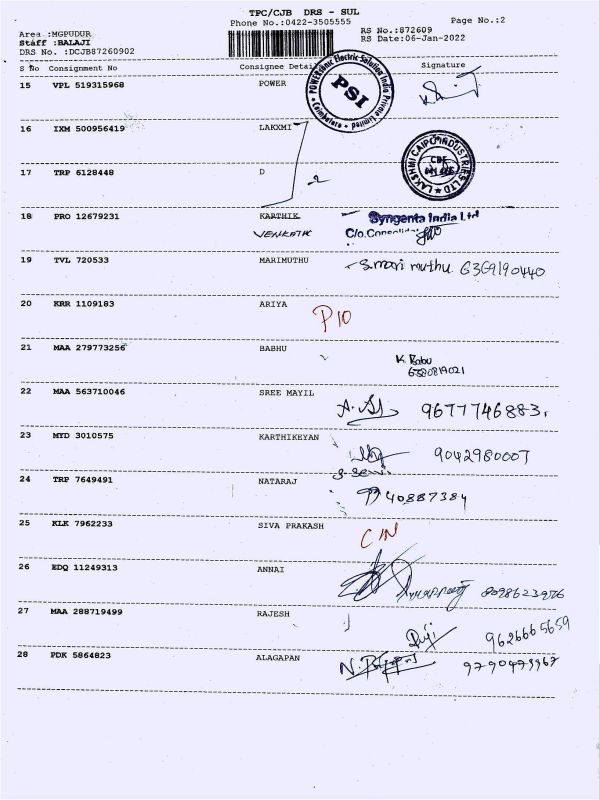 TPC/CJB DRS - SUL
Phone No.:0422-3505555
Page No.:2
Area :MGPUDUR
Staff :BALAJI
DRS No. :DCJB87260902
RS No.:872609
RS Date:06-Jan-2022
S No Consignment No Consignee Detail Signature
15 VPL 519315968 POWER
POWERonic Electric Solution India Private Limited
Coimbatore
PSI
16 IXM 500956419 LAKXMI
17 TRP 6128448 D
LAKSHMI CAIPO INDUSTRIES LTD
CBE
18 PRO 12679231 KARTHIK
VENKETK
Syngenta India Ltd
C/o.Consolida
19 TVL 720533 MARIMUTHU S.mari muthu 6369190440
20 KRR 1109183 ARIYA P10
21 MAA 279773256 BABHU K. Babu
6380819021
22 MAA 563710046 SREE MAYIL 9677746883.
23 MYD 3010575 KARTHIKEYAN 9042980007
24 TRP 7649491 NATARAJ 9940887384
25 KLK 7962233 SIVA PRAKASH C/N
26 EDQ 11249313 ANNAI
27 MAA 288719499 RAJESH 9626665659
28 PDK 5864823 ALAGAPAN